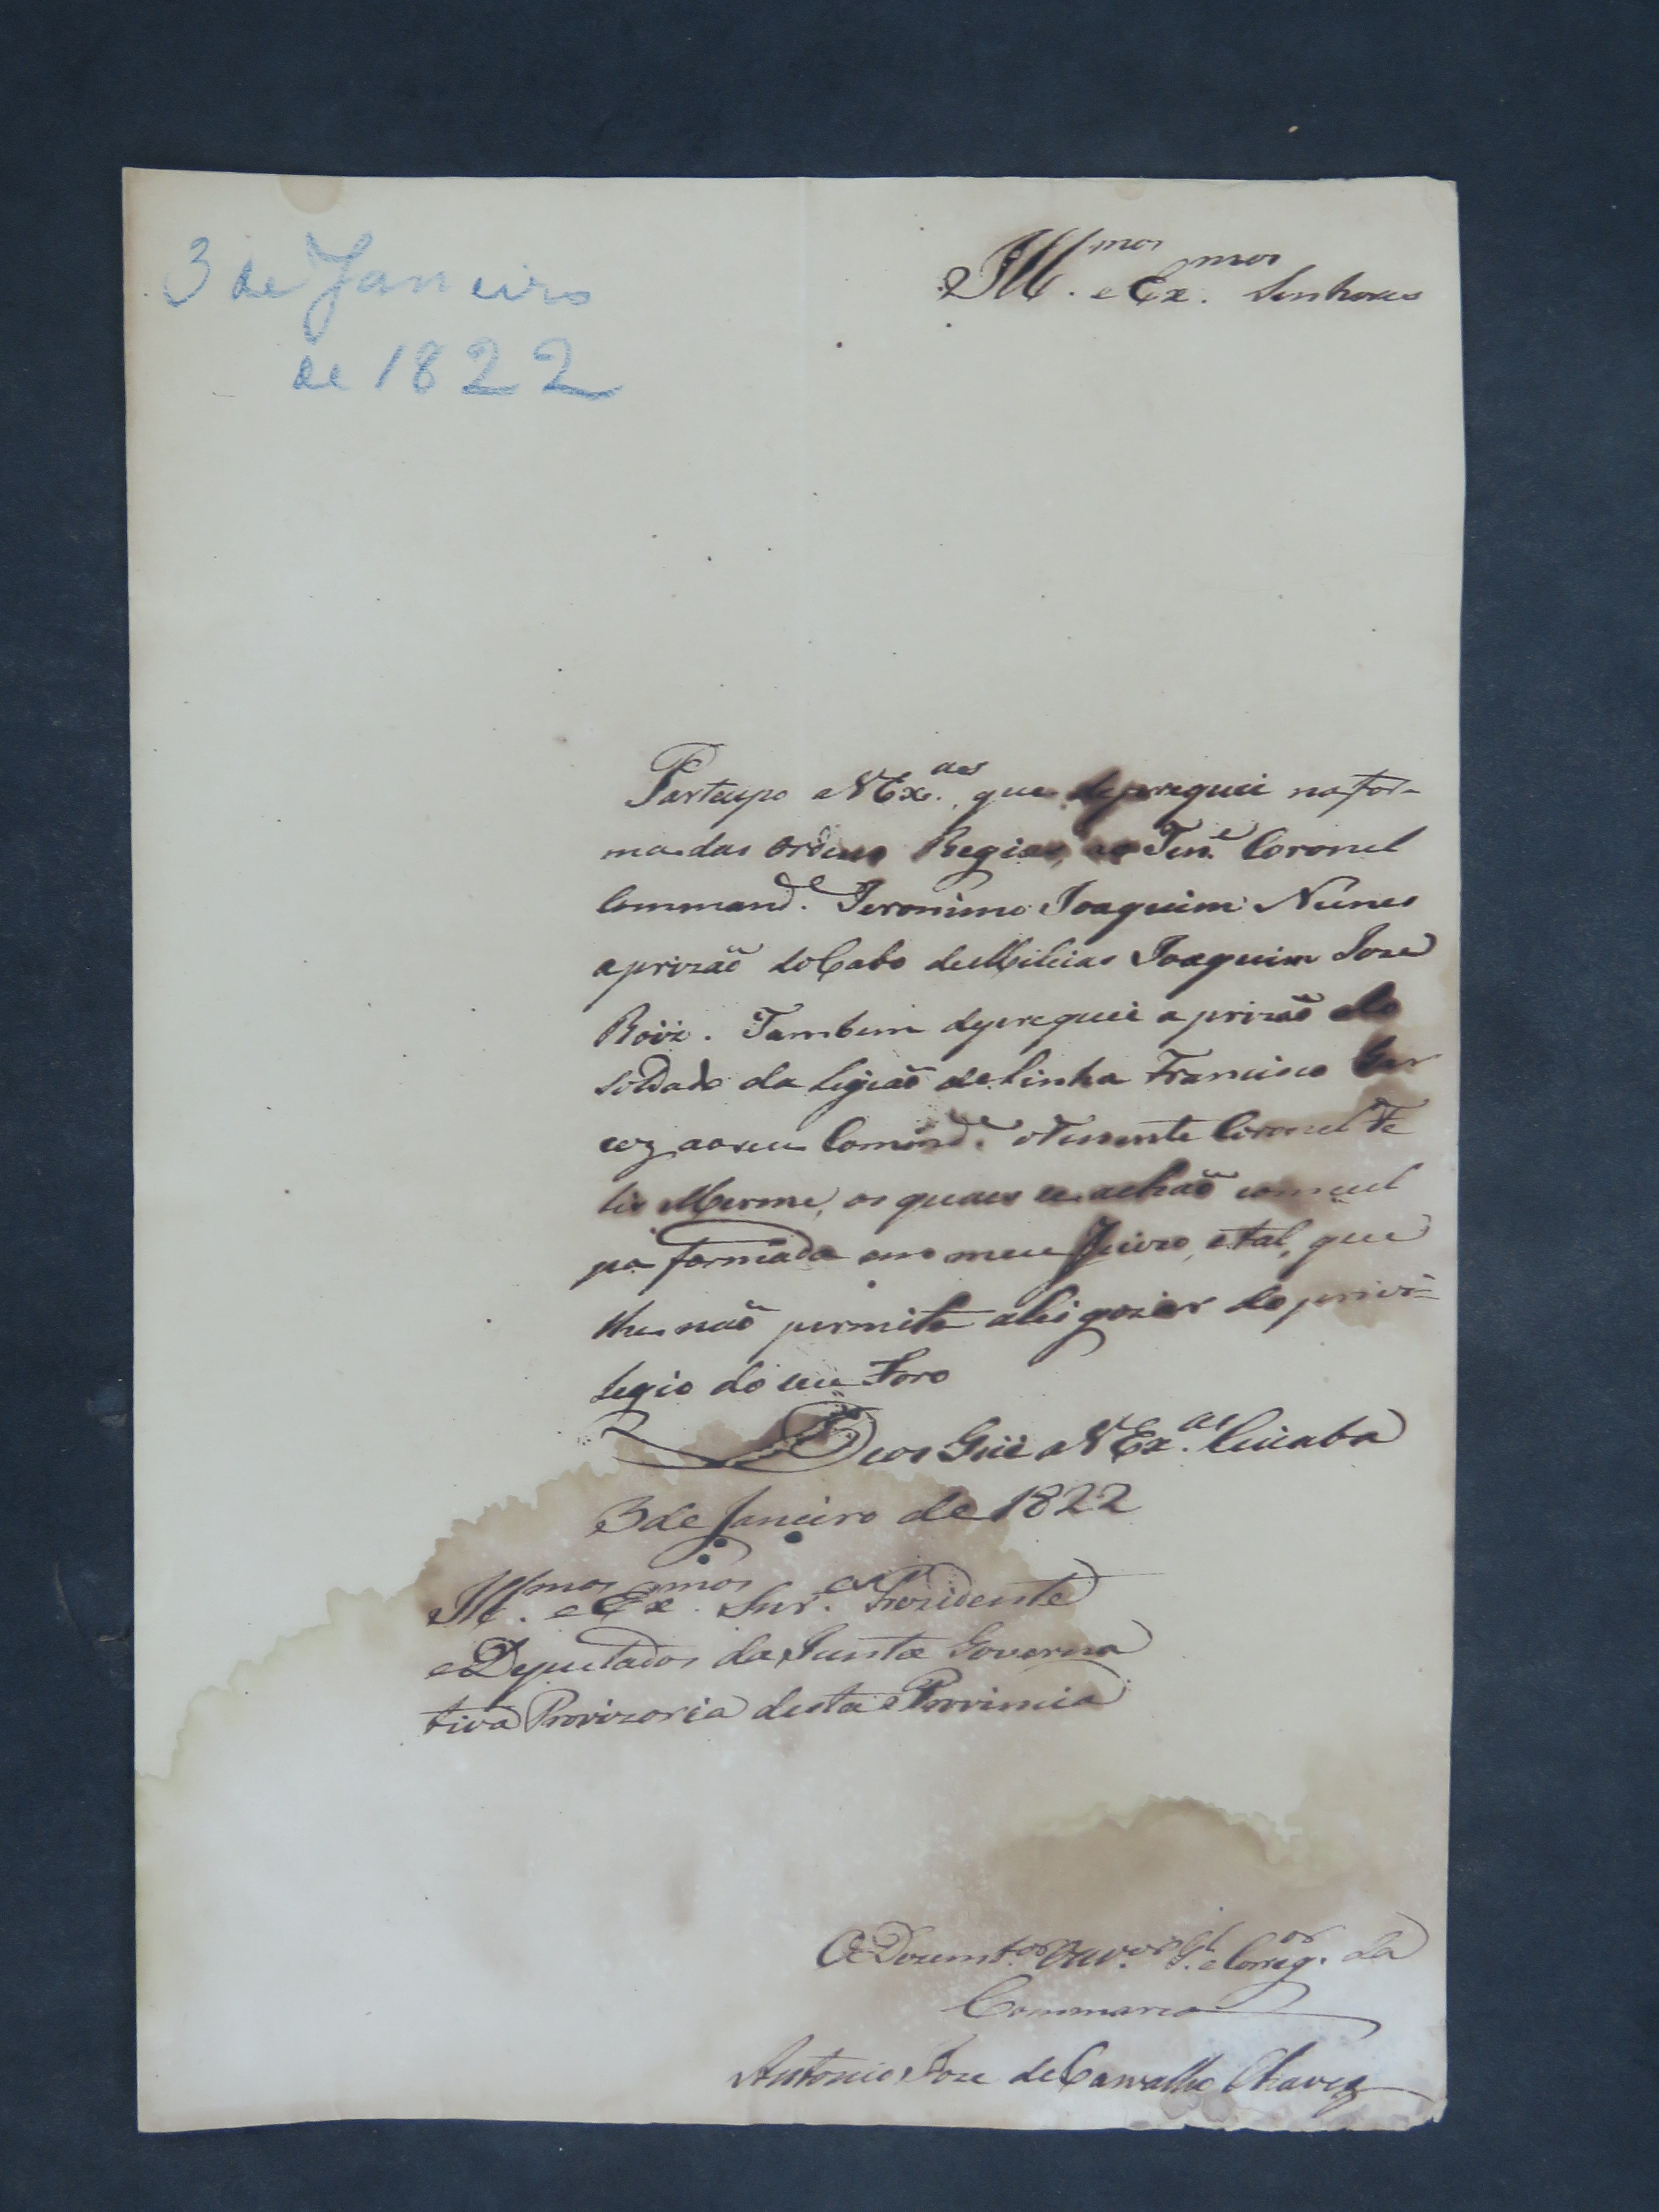 3 de Janeiro
de 1822
Ill.mos e Ex.mos Senhores
Partecipo a V Ex.as que depreguei na for-
ma das ordens Regias, ao Ten.e Coronel
Command.e Jeronimo Joaquim Nunes
a prizaõ do Cabo de Milicias Joaquim Joze
Roiz. Tambem depreguei a prizaõ do
soldado da Legiaõ de Linha Francisco Gar
cez ao seu Comand.e o Tenente Coronel Fe
lis Merme, os quaes se achaõ com cul
pa formada em o meu Juizo, e tal, que
lhes naõ permite a lei gozar do privi=
legio do seu Foro
Deos Gue a V Ex.as Cuiaba
3 de Janeiro de 1822
Ill.mos e Ex.mos Snr.es Prezidente
e Deputados da Junta Governa
tiva Provizoria desta Provincia
O Dezemb.or Ouv.or G.l e Correg.or da
Commarca
Antonio Joze de Carvalho Chaves